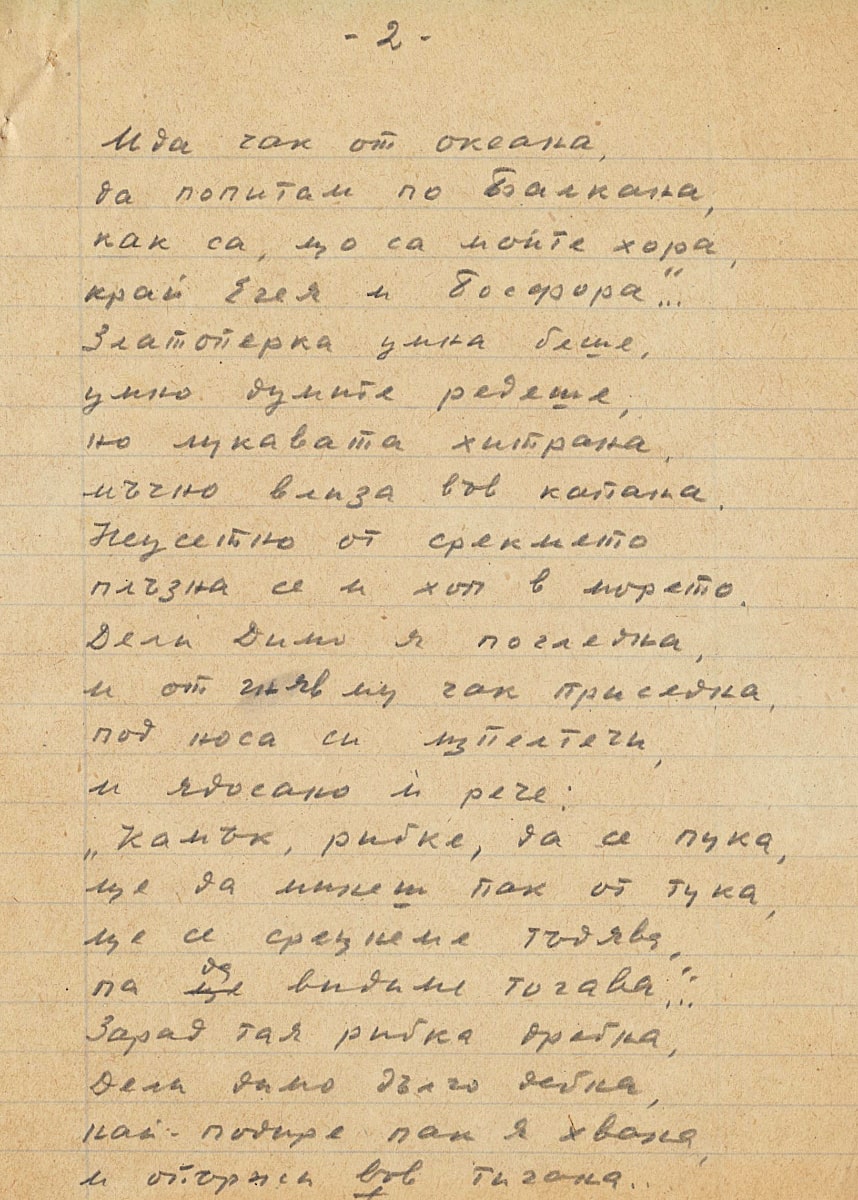 - 2 -
Ида чак от океана,
да попитам по Балкана,
как са, що са мойте хора,
край Егея и Босфора"...
Златоперка умна беше,
умно думите редеше,
но лукавата хитрана,
мъчно влиза във капана.
Неусетно от срекмето
плъзна се и хоп в морето.
Дели Димо я погледна,
и от гняв му чак приседна,
под носа си изпелтечи,
и ядосано ѝ рече:
„Камък, рибке, да се пука,
ще да минеш пак от тука,
ще се срещнеме тъдява,
па да видиме тогава"...
Зарад тая рибка дребна,
Дели димо дълго дебна,
най-подире пак я хвана,
и отържи във тигана..